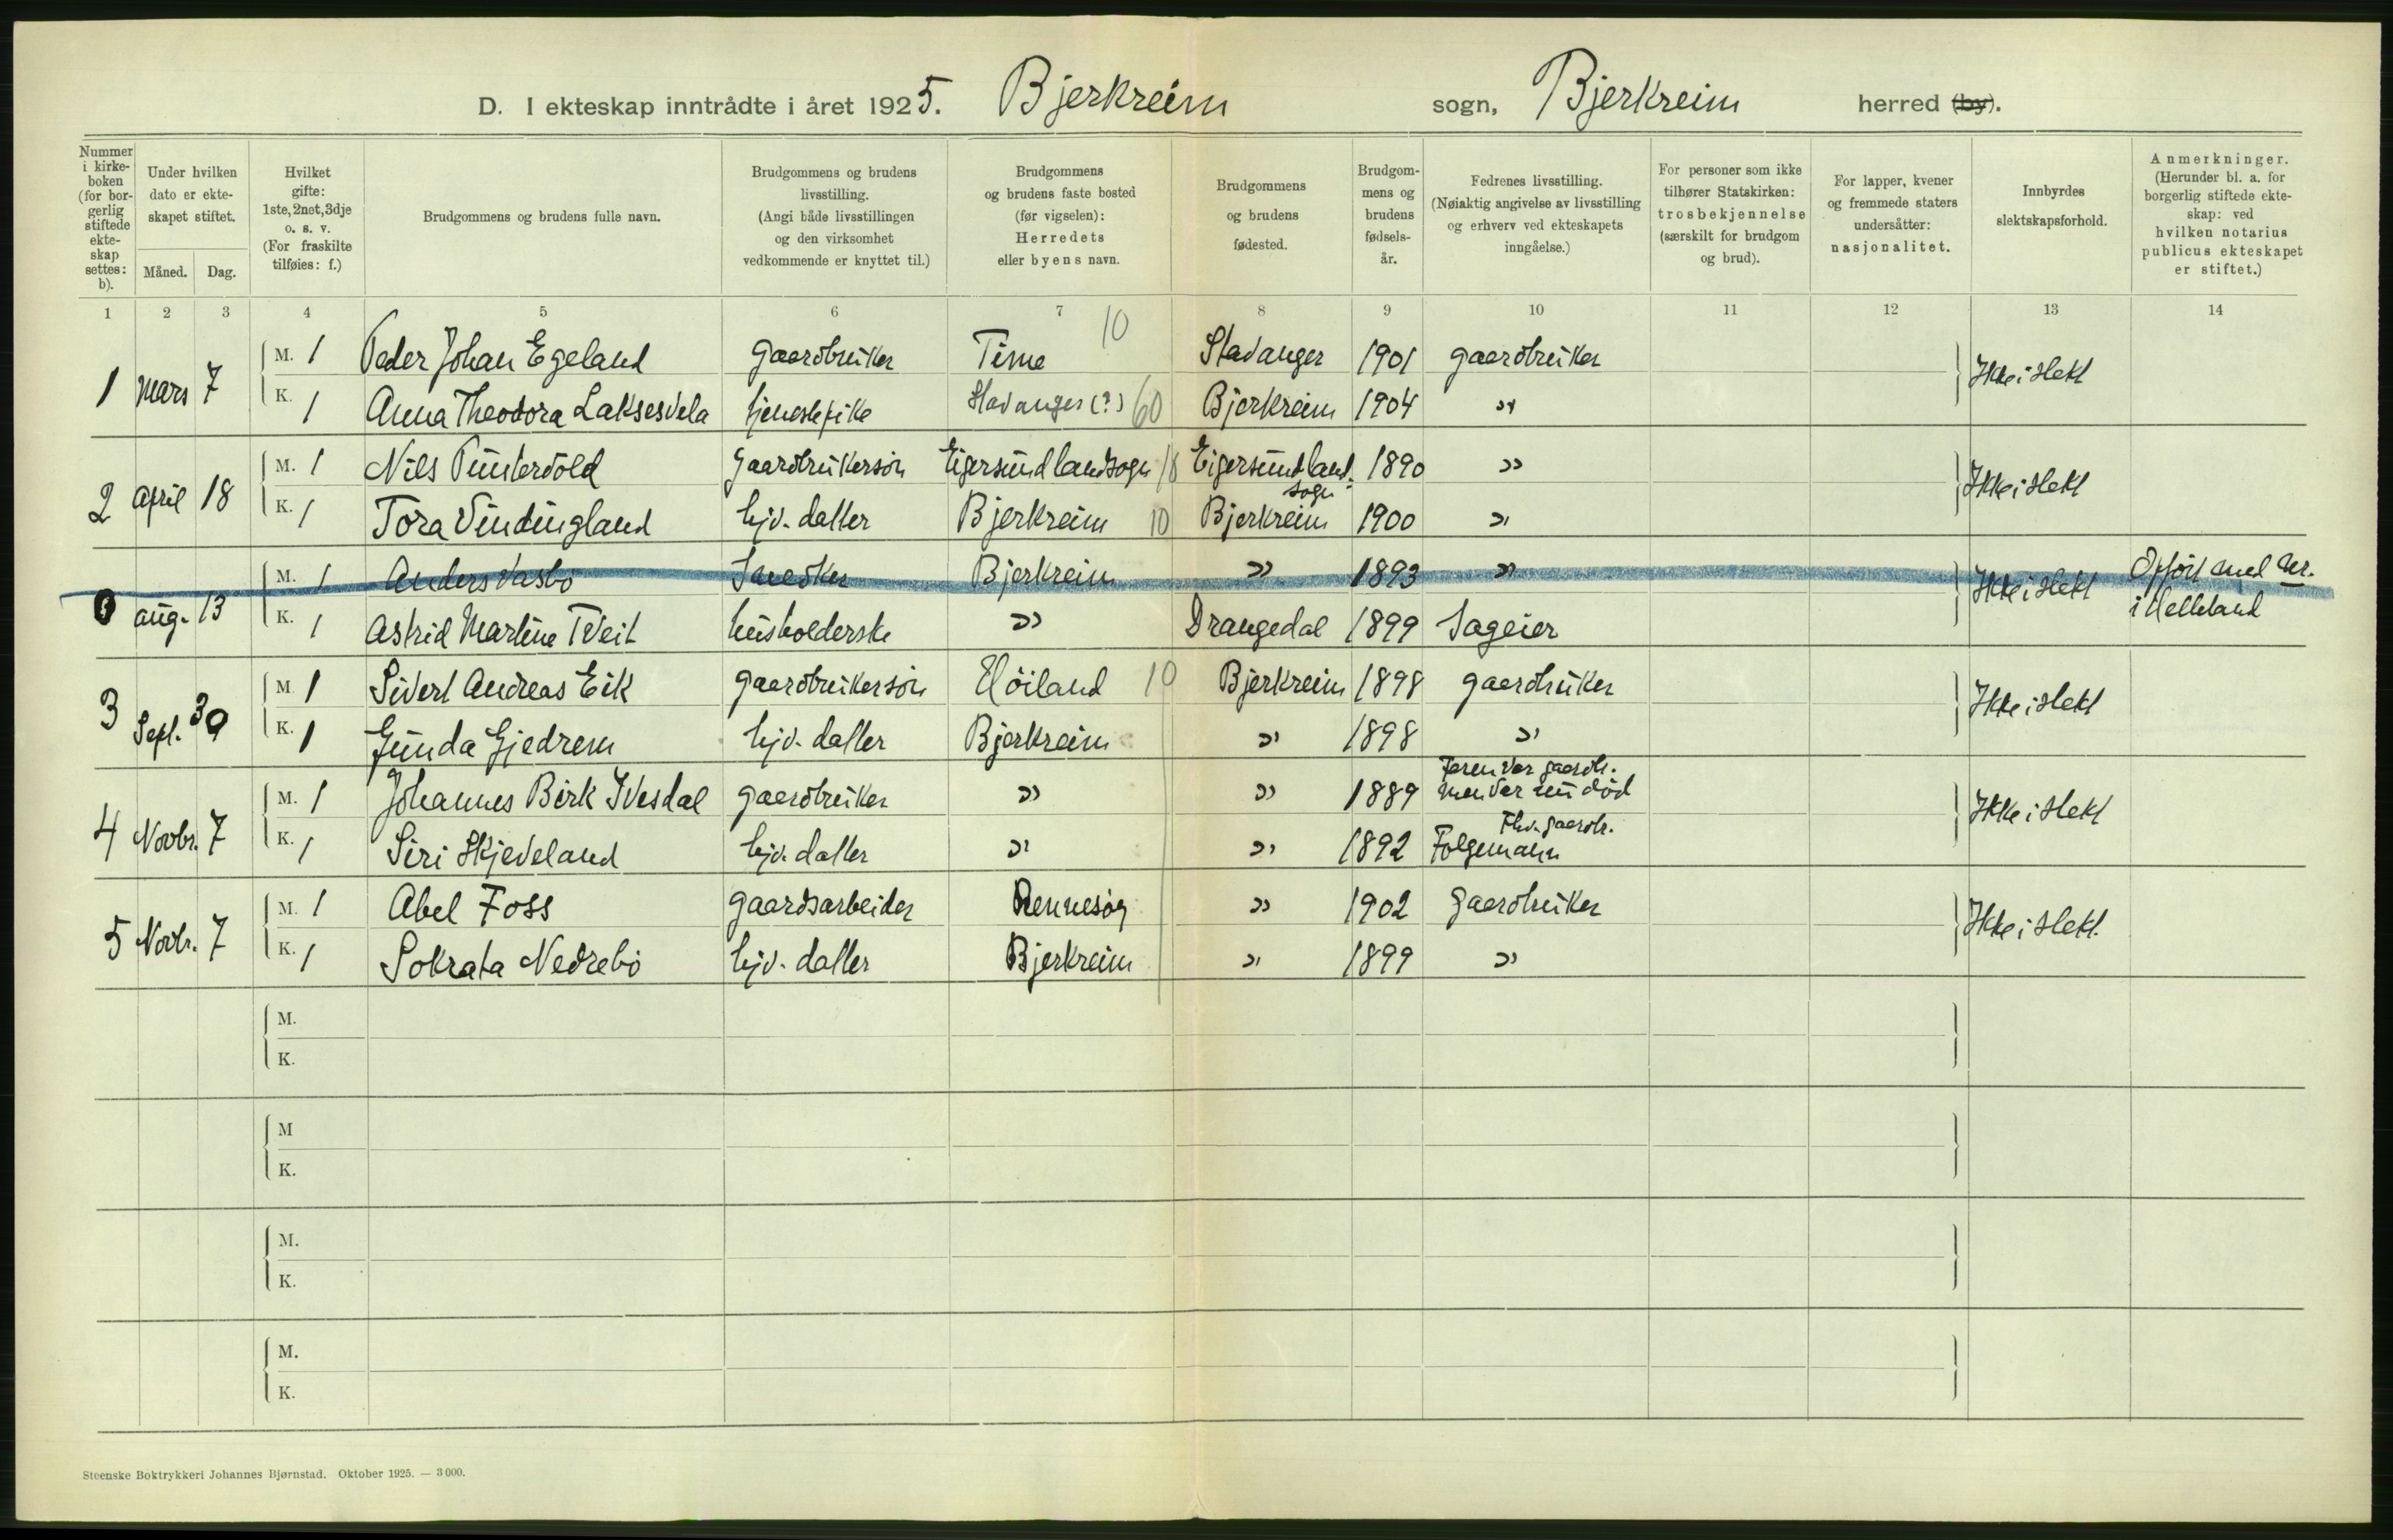 D. I ekteskap inntrådte i året 1925. Bjerkreim sogn, Bjerkreim herred (by).
Nummer i kirkeboken (for borgerlig stiftede ekteskap settes: b).
Under hvilken dato er ekteskapet stiftet.
Måned. Dag.
Hvilket gifte: 1ste, 2net, 3dje o. s. v. (For fraskilte tilføies: f.)
Brudgommens og brudens fulle navn.
Brudgommens og brudens livsstilling. (Angi både livsstillingen og den virksomhet vedkommende er knyttet til.)
Brudgommens og brudens faste bosted (før vigselen): Herredets eller byens navn.
Brudgommens og brudens fødested.
Brudgommens og brudens fødselsår.
Fedrenes livsstilling. (Nøiaktig angivelse av livsstilling og erhverv ved ekteskapets inngåelse.)
For personer som ikke tilhører Statskirken: trosbekjennelse (særskilt for brudgom og brud).
For lapper, kvener og fremmede staters undersåtter: nasjonalitet.
Innbyrdes slektskapsforhold.
Anmerkninger. (Herunder bl. a. for borgerlig stiftede ekteskap: ved hvilken notarius publicus ekteskapet er stiftet.)
1 2 3 4 5 6 7 8 9 10 11 12 13 14
10
M. 1 Peder Johan Egeland gaardbruker Time Stavanger 1901 gaardbruker
1 Mars 7 Ikke i slekt
K. 1 Anna Theodora Laksesvela tjenestepike Stavanger (?) 60 Bjerkreim 1904 "
M. 1 Nils Puntervold gaardbrukersön Eigersund landsogn 18 Eigersund land- sogn 1890 "
2 April 18 Ikke i slekt
K. 1 Tora Vindingland hjv. datter Bjerkreim 10 Bjerkreim 1900 "
M. 1 Anders Vasbö Bjerkreim " 1893 " Opfört med Nr.
aug. 13 Ikke i slekt
K. 1 Astrid Martine Tveit husholderske " Drangedal 1899 Sageier i Helleland
M. 1 Sivert Andreas Eik gaardbrukersön Höiland 10 Bjerkreim 1898 gaardbruker
3 Sept. 30 Ikke i slekt
K. 1 Gunda Gjedrem hjv. datter Bjerkreim " 1898 "
M. 1 Johannes Birk Ivesdal gaardbruker " " 1889 Faren var gaardbr. men var nu död
4 Novbr. 7 Ikke i slekt
K. 1 Siri Skjeveland hjv. datter " " 1892 Fhv. gaardbr. Folgemann
M. 1 Abel Foss gaardsarbeider Rennesöy " 1902 gaardbruker
5 Novbr. 7 Ikke i slekt.
K. 1 Sokrata Nedrebö hjv. datter Bjerkreim " 1899 "
M.
K.
M
K.
M.
K.
M.
K.
Steenske Boktrykkeri Johannes Bjørnstad. Oktober 1925. — 3 000.